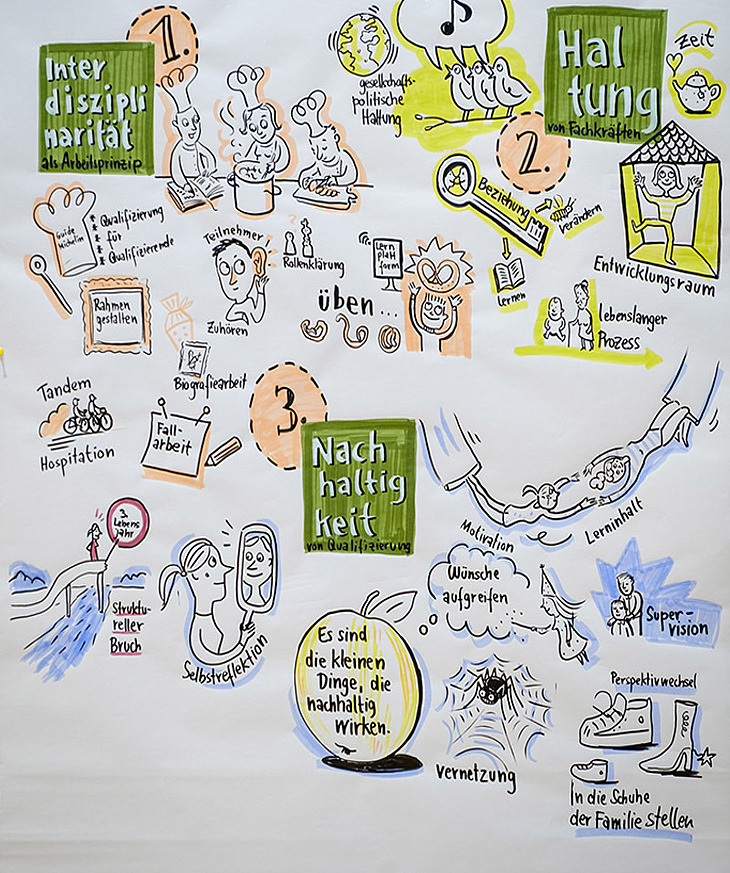 1.
Inter
diszipli
narität
als Arbeitsprinzip
Guide
Michelin
* Qualifizierung
* für
* Qualifizierende
Teilnehmer
Zuhören
Rollenklärung
Lern
platt
form
üben...
Rahmen
gestalten
Biografiearbeit
Tandem
Hospitation
Fall-
arbeit
gesellschafts-
politische
Haltung
Hal
tung
von Fachkräften
Zeit
2.
Beziehung
verändern
Lernen
Entwicklungsraum
Lebenslanger
Prozess
3.
Nach
haltig
keit
von Qualifizierung
Motivation
Lerninhalt
3.
Lebens
jahr
Struktu-
reller
Bruch
Selbstreflektion
Wünsche
aufgreifen
Super-
vision
Es sind
die kleinen
Dinge, die
nachhaltig
wirken.
Vernetzung
Perspektivwechsel
In die Schuhe
der Familie stellen